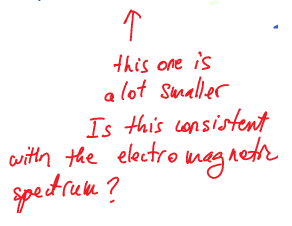 this one is
a lot smaller
Is this consistent
with the electromagnetic
spectrum?